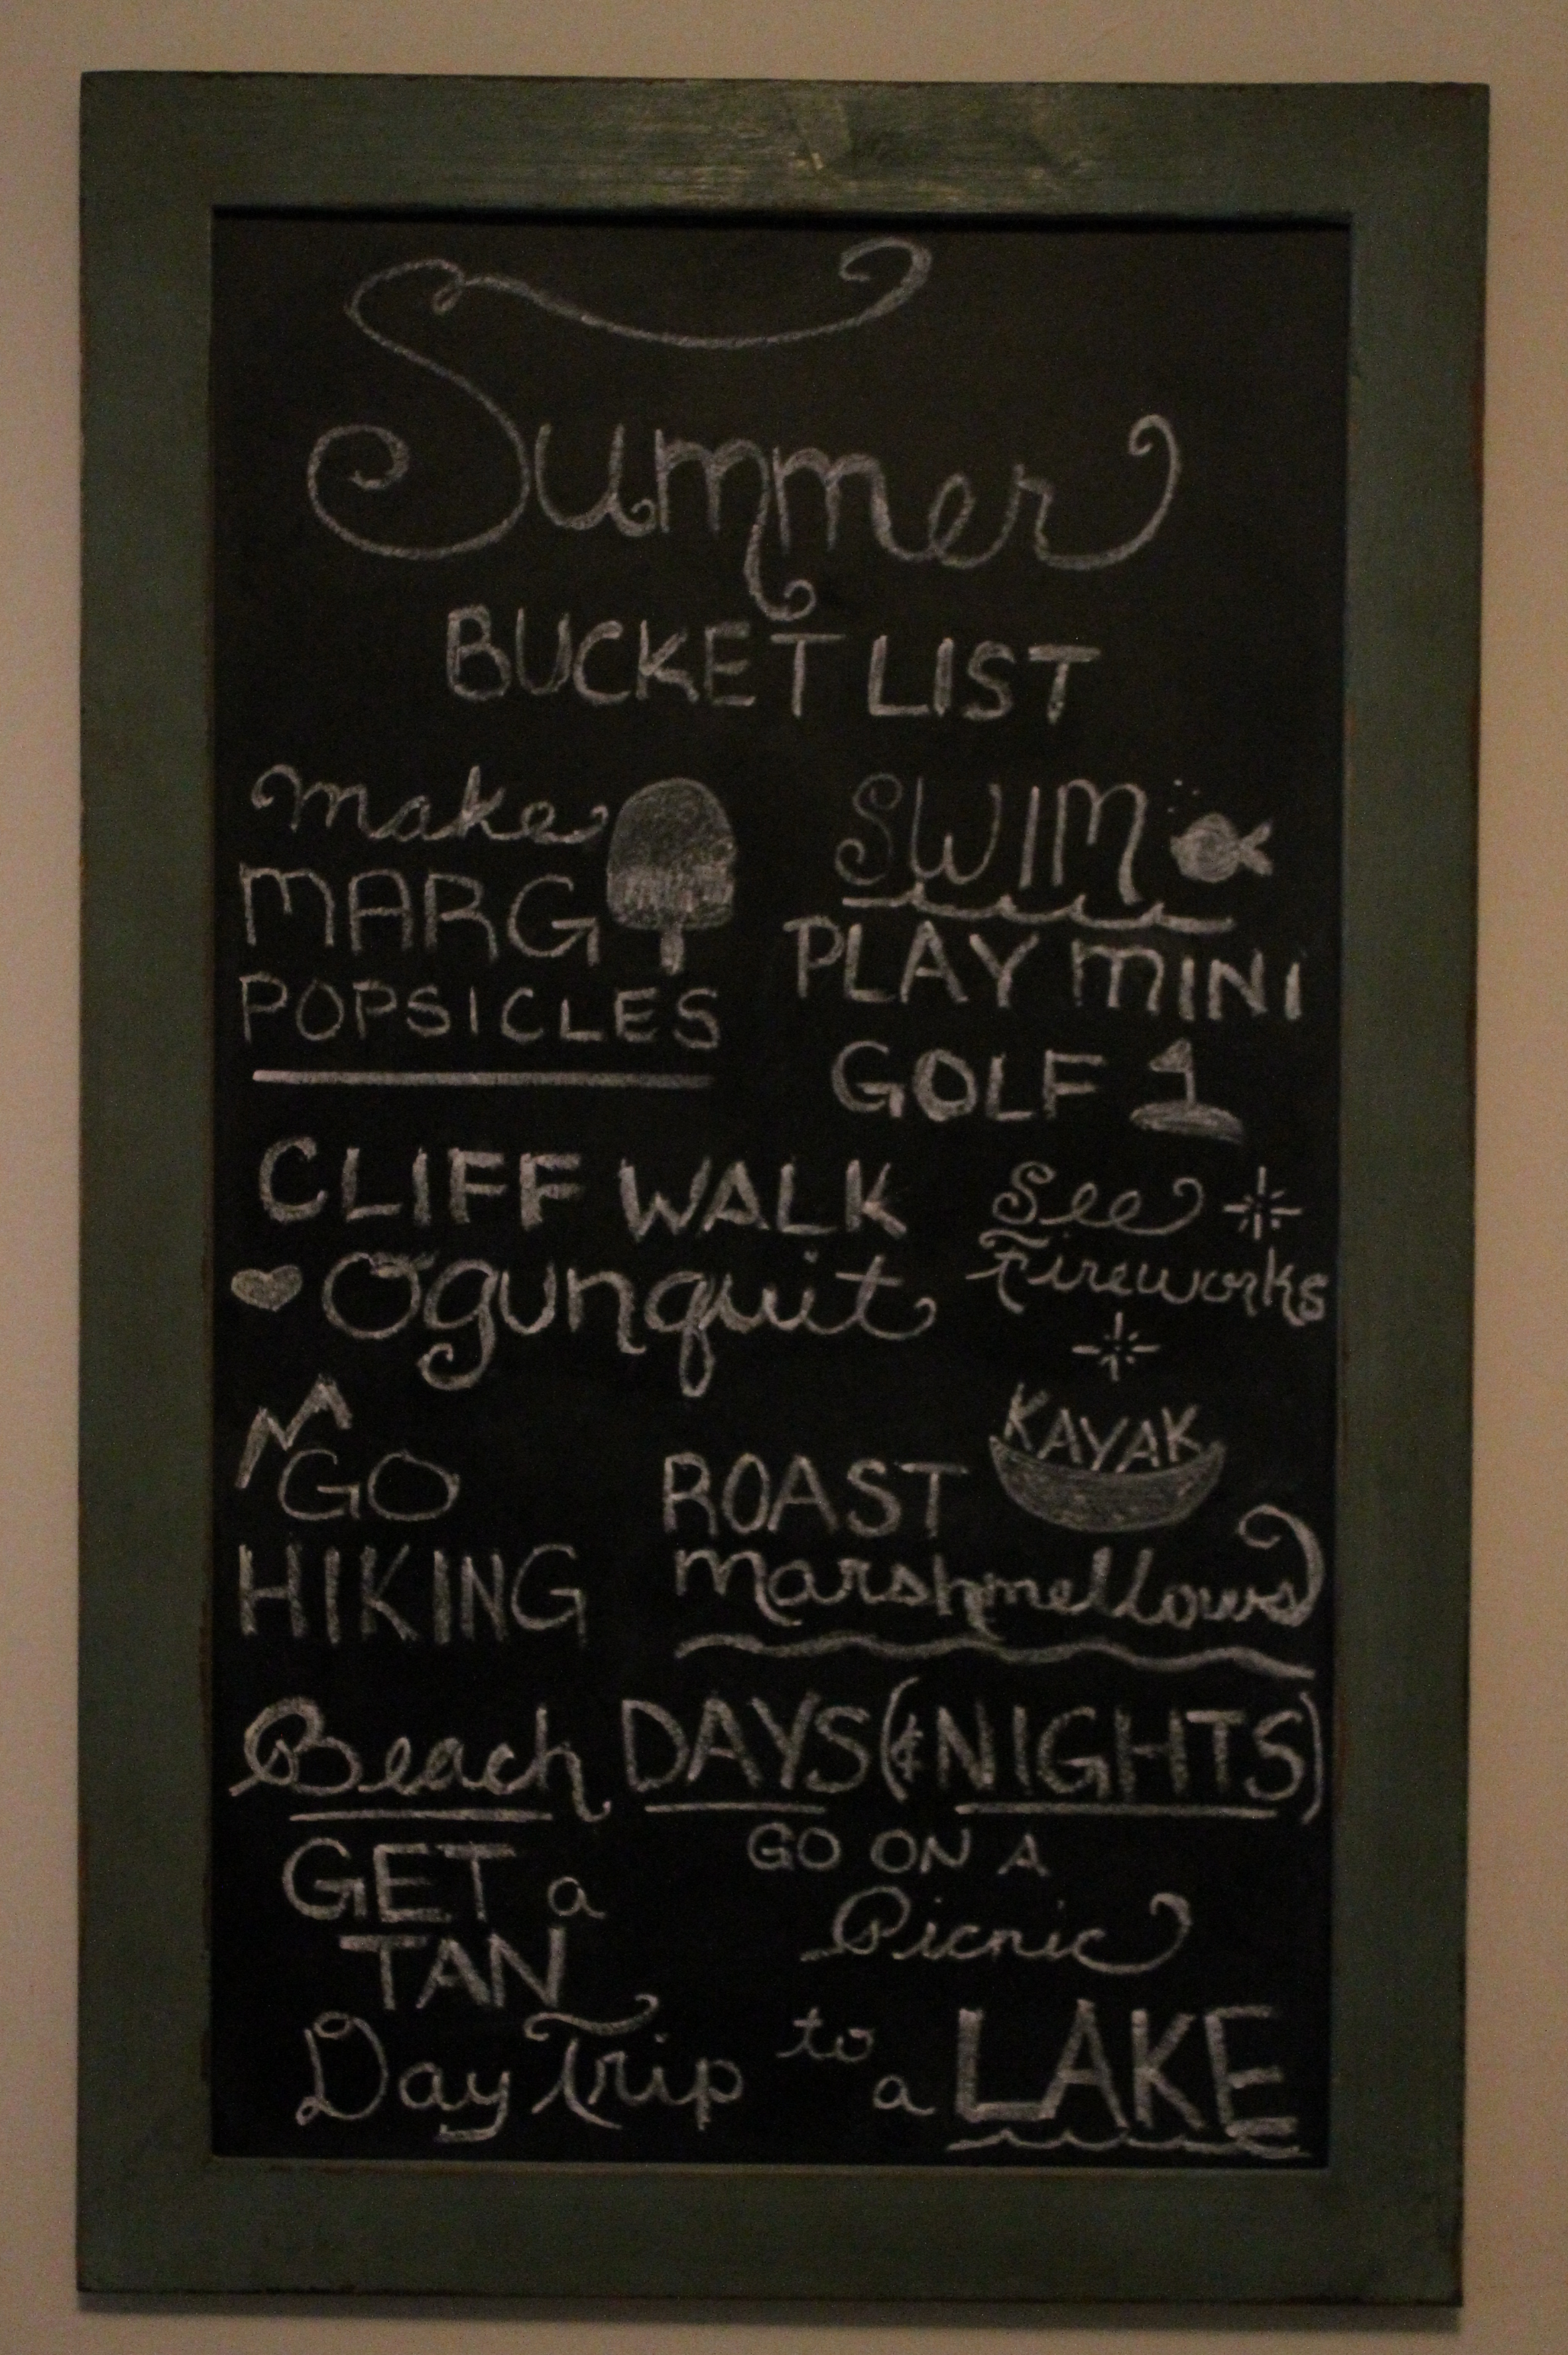 Summer
BUCKET LIST
make
MARG
POPSICLES
SWIM
PLAY MINI
GOLF
CLIFF WALK
Ogunquit
See
Fireworks
GO
HIKING
KAYAK
ROAST
marshmellows
Beach DAYS (& NIGHTS)
GET a
TAN
GO ON A
Picnic
Day Trip to a LAKE